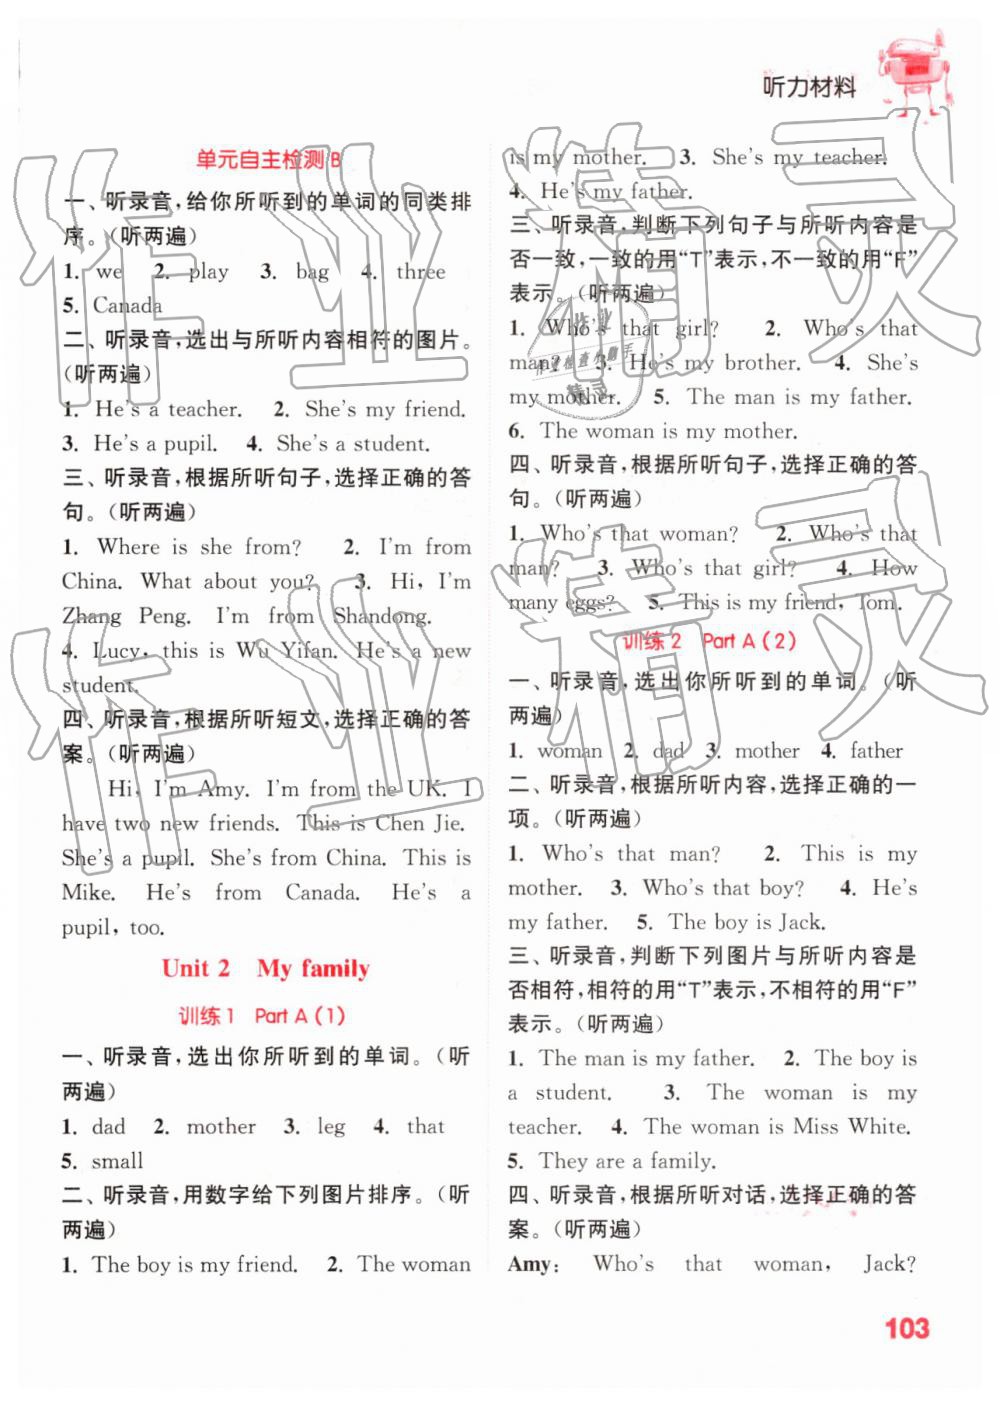 听力材料
单元自主检测 B
一、听录音,给你所听到的单词的同类排
序。(听两遍)
1. we 2. play 3. bag 4. three
5. Canada
二、听录音,选出与所听内容相符的图片。
(听两遍)
1. He's a teacher. 2. She's my friend.
3. He's a pupil. 4. She's a student.
三、听录音,根据所听句子,选择正确的答
句。(听两遍)
1. Where is she from? 2. I'm from
China. What about you? 3. Hi, I'm
Zhang Peng. I'm from Shandong.
4. Lucy, this is Wu Yifan. He's a new
student.
四、听录音,根据所听短文,选择正确的答
案。(听两遍)
Hi, I'm Amy. I'm from the UK. I
have two new friends. This is Chen Jie.
She's a pupil. She's from China. This is
Mike. He's from Canada. He's a
pupil, too.
Unit 2 My family
训练1 Part A (1)
一、听录音,选出你所听到的单词。(听
两遍)
1. dad 2. mother 3. leg 4. that
5. small
二、听录音,用数字给下列图片排序。(听
两遍)
1. The boy is my friend. 2. The woman
is my mother. 3. She's my teacher.
4. He's my father.
三、听录音,判断下列句子与所听内容是
否一致,一致的用“T”表示,不一致的用“F”
表示。(听两遍)
1. Who's that girl? 2. Who's that
man? 3. He's my brother. 4. She's
my mother. 5. The man is my father.
6. The woman is my mother.
四、听录音,根据所听句子,选择正确的答
句。(听两遍)
1. Who's that woman? 2. Who's that
man? 3. Who's that girl? 4. How
many eggs? 5. This is my friend, Tom.
训练2 Part A (2)
一、听录音,选出你所听到的单词。(听
两遍)
1. woman 2. dad 3. mother 4. father
二、听录音,根据所听内容,选择正确的一
项。(听两遍)
1. Who's that man? 2. This is my
mother. 3. Who's that boy? 4. He's
my father. 5. The boy is Jack.
三、听录音,判断下列图片与所听内容是
否相符,相符的用“T”表示,不相符的用“F”
表示。(听两遍)
1. The man is my father. 2. The boy is
a student. 3. The woman is my
teacher. 4. The woman is Miss White.
5. They are a family.
四、听录音,根据所听对话,选择正确的答
案。(听两遍)
Amy: Who's that woman, Jack?
103
作业精灵
作业精灵
作业
作业检查小助手
精灵